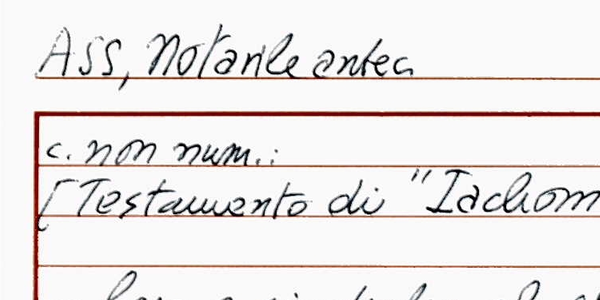 ASS, Notarile antec.
c. non num.:
[Testamento di "Iachom